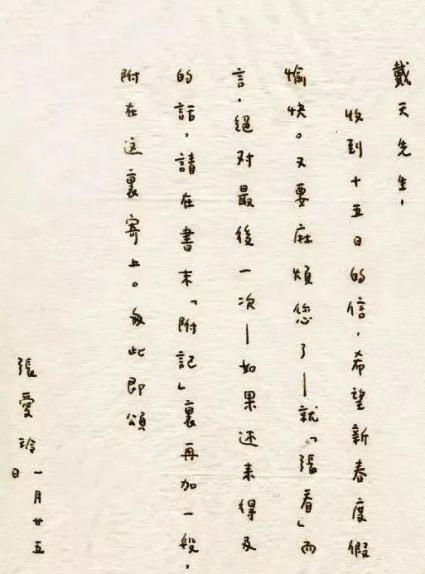 戴天先生，
收到十五日的信，希望新春度假
愉快。又要麻煩您了—就「張看」而
言，絕对最後一次—如果还来得及
的話，請在書末「附記」裏再加一段，
附在这裏寄上。匆此即頌
張愛玲 一月廿五
日